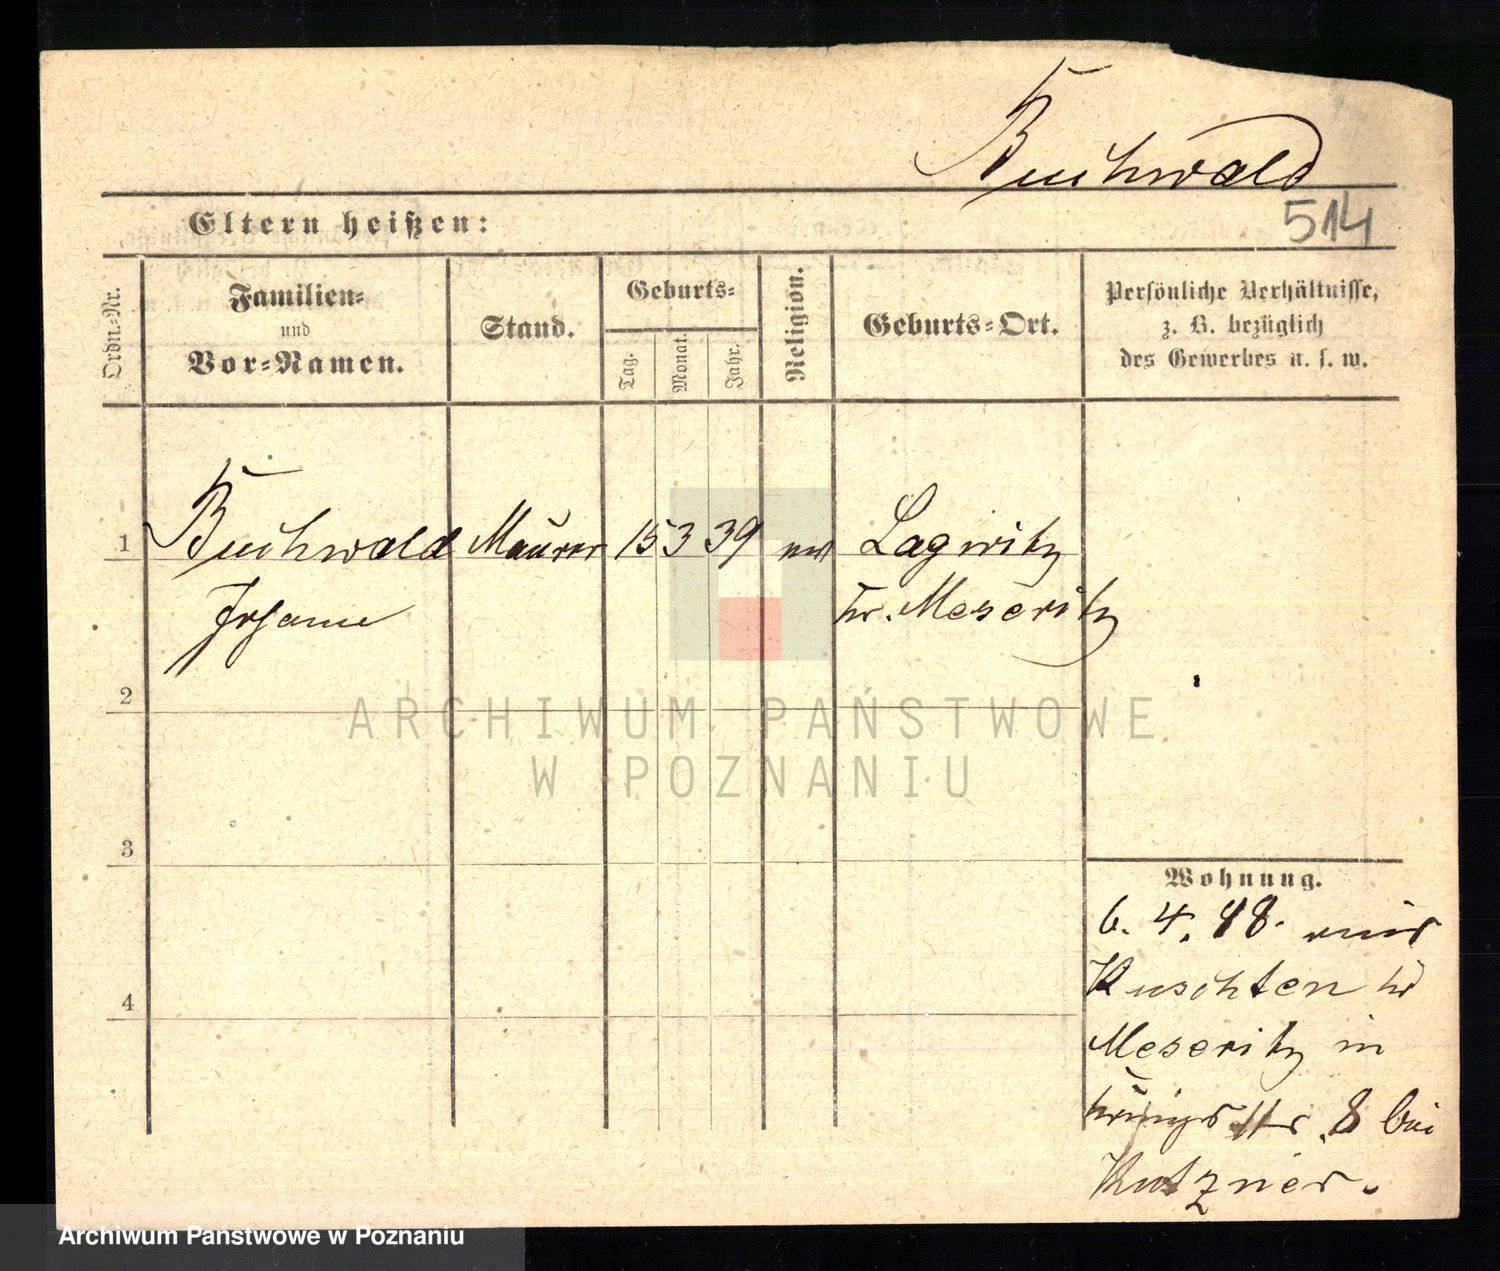 Buchwald
514
Eltern heißen:
Ordn.-Nr.
Familien-
und
Vor-Namen.
Stand.
Geburts-
Tag.
Monat.
Jahr.
Religion.
Geburts-Ort.
Persönliche Verhältnisse,
z. B. bezüglich
des Gewerbes u. s. w.
1 Buchwald Maurer 15 3 39 ev Lagwitz
Johann Kr. Meseritz
2
ARCHIWUM PAŃSTWOWE
W POZNANIU
3
Wohnung.
6. 4. 88. aus
Kuschten Kr
4
Meseritz in
Königsstr. 8 bei
Kutzner.
Archiwum Państwowe w Poznaniu